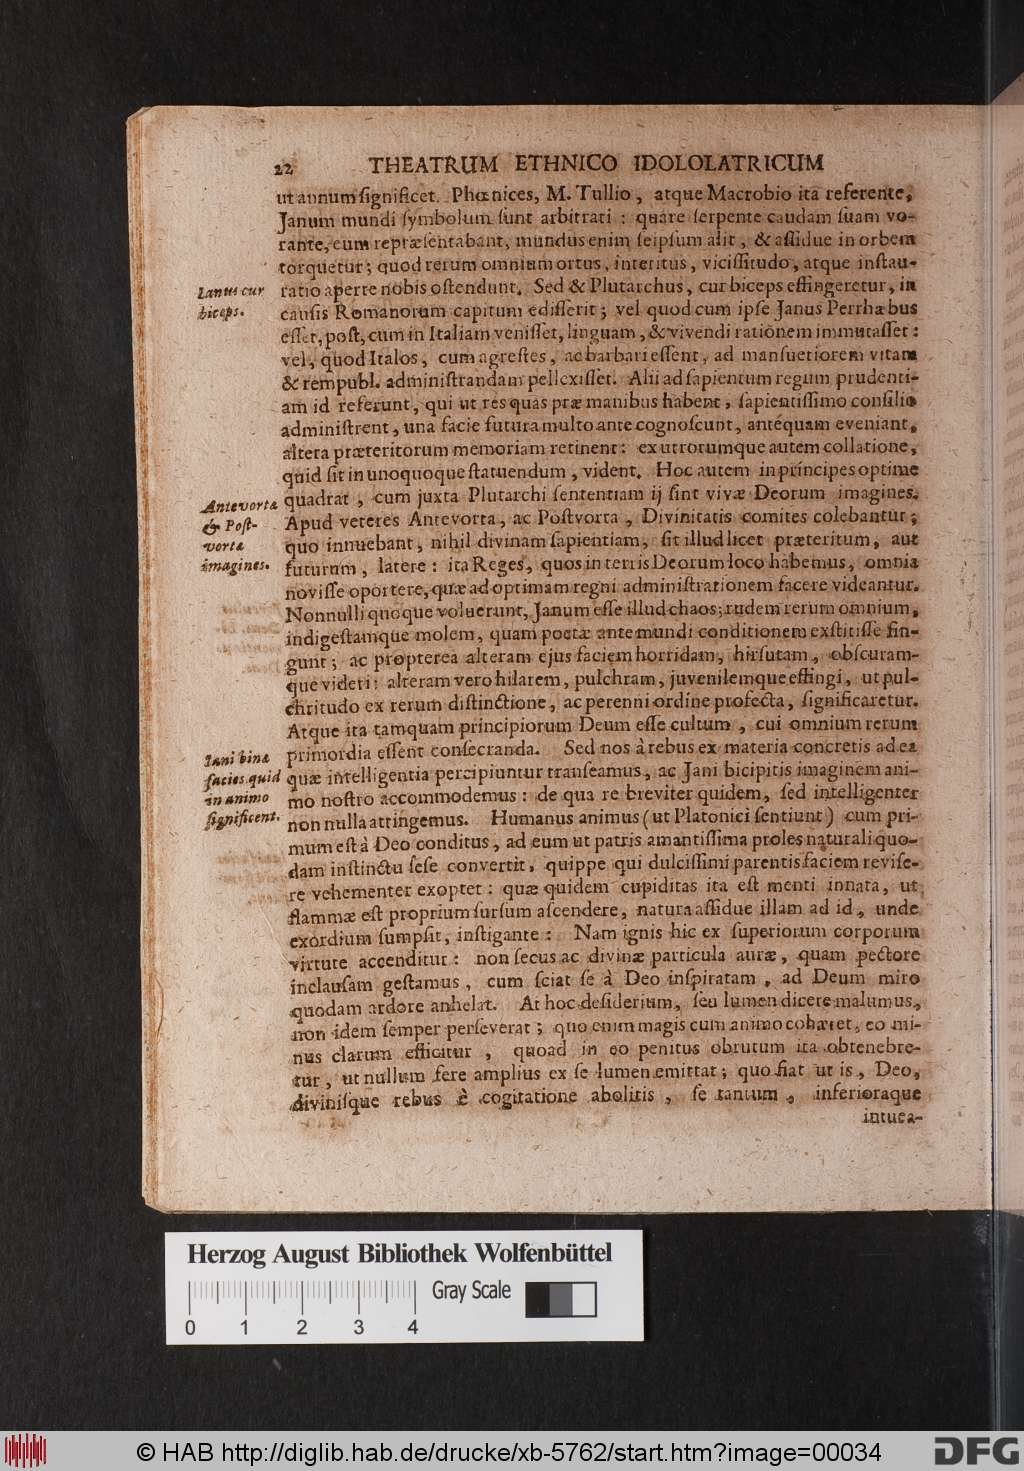 22 THEATRUM ETHNICO IDOLOLATRICUM
ut annum ſignificet. Phœnices, M. Tullio, atque Macrobio ita referente,
Janum mundi ſymbolum ſunt arbitrati : quare ſerpente caudam ſuam vo-
rante, eum repræſentabant, mundus enim ſeipſum alit, & aſſidue in orbem
torquetur; quod rerum omnium ortus, interitus, viciſſitudo, atque inſtau-
ratio aperte nobis oſtendunt. Sed & Plutarchus, cur biceps effingeretur, in
cauſis Romanorum capitum ediſſerit; vel quod cum ipſe Janus Perrhæbus
eſſet, poſt, cum in Italiam veniſſet, linguam, & vivendi rationem immutaſſet :
vel, quod Italos, cum agreſtes, ac barbari eſſent, ad manſuetiorem vitam
& rempubl. adminiſtrandam pellexiſſet. Alii ad ſapientum regum prudenti-
am id referunt, qui ut res quas præ manibus habent, ſapientiſſimo conſilio
adminiſtrent, una facie futura multo ante cognoſcunt, antéquam eveniant,
altera præteritorum memoriam retinent: ex utrorumque autem collatione,
quid ſit in unoquoque ſtatuendum, vident. Hoc autem in principes optime
quadrat, cum juxta Plutarchi ſententiam ij ſint vivæ Deorum imagines.
Apud veteres Antevorta, ac Poſtvorta, Divinitatis comites colebantur;
quo innuebant, nihil divinam ſapientiam, ſit illud licet præteritum, aut
futurum, latere: ita Reges, quos in terris Deorum loco habemus, omnia
noviſſe oportere, quæ ad optimam regni adminiſtrationem facere videantur.
Nonnulli quoque voluerunt, Janum eſſe illud chaos; rudem rerum omnium,
indigeſtamque molem, quam poetæ ante mundi conditionem exſtitiſſe fin-
gunt; ac propterea alteram ejus faciem horridam, hirſutam, obſcuram-
que videri: alteram vero hilarem, pulchram, juvenilemque effingi, ut pul-
chritudo ex rerum diſtinctione, ac perenni ordine profecta, ſignificaretur.
Atque ita tamquam principiorum Deum eſſe cultum, cui omnium rerum
primordia eſſent conſecranda. Sed nos à rebus ex materia concretis ad ea
quæ intelligentia percipiuntur tranſeamus, ac Jani bicipitis imaginem ani-
mo noſtro accommodemus: de qua re breviter quidem, ſed intelligenter
non nulla attingemus. Humanus animus (ut Platonici ſentiunt) cum pri-
mum eſt à Deo conditus, ad eum ut patris amantiſſima proles naturali quo-
dam inſtinctu ſeſe convertit, quippe qui dulciſſimi parentis faciem reviſe-
re vehementer exoptet: quæ quidem cupiditas ita eſt menti innata, ut
flammæ eſt proprium ſurſum aſcendere, natura aſſidue illam ad id, unde
exordium ſumpſit, inſtigante: Nam ignis hic ex ſuperiorum corporum
virtute accenditur: non ſecus ac divinæ particula auræ, quam pectore
incluſam geſtamus, cum ſciat ſe à Deo inſpiratam, ad Deum miro
quodam ardore anhelat. At hoc deſiderium, ſeu lumen dicere malumus,
non idem ſemper perſeverat; quo enim magis cum animo cohæret, eo mi-
nus clarum efficitur, quoad in eo penitus obrutum ita obtenebre-
tur, ut nullum fere amplius ex ſe lumen emittat; quo fiat ut is, Deo,
diviniſque rebus è cogitatione abolitis, ſe tantum, inferioraque
intuea-
Ianus cur
biceps.
Antevorta
& Poſt-
vorta
imagines.
Iani binæ
facies quid
in animo
ſignificent.
Herzog August Bibliothek Wolfenbüttel
Gray Scale
0 1 2 3 4
© HAB http://diglib.hab.de/drucke/xb-5762/start.htm?image=00034
DFG